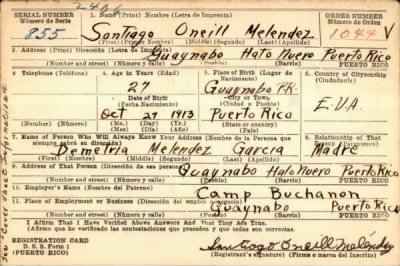 SERIAL NUMBER
Número de Serie
855
2406
1. Name (Print) Nombre (Letra de Imprenta)
Santiago Oneill Melendez
(First) (Nombre) (Middle) (Segundo) (Last) (Apellido)
ORDER NUMBER
Número de Orden
1044 V
2. Address (Print) Dirección (Letra de Imprenta)
Guaynabo Hato Nuevo Puerto Rico
(Number and street) (Número y calle) (Town) (Pueblo) PUERTO RICO
3. Telephone (Teléfono)
4. Age in Years (Edad)
27
Date of Birth
(Fecha Nacimiento)
Oct 27 1913
(Mo.) (Day) (Yr.)
(Mes) (Día) (Año)
5. Place of Birth (Lugar de Nacimiento)
Guaynabo P.R.
(Town or city)
(Ciudad o Pueblo)
Puerto Rico
(State or country)
(Estado o país)
6. Country of Citizenship
(Ciudadanía)
E.U.A.
7. Name of Person Who Will Always Know Your Address (Nombre de la Persona que
siempre sabrá su dirección)
Demetria Melendez Garcia
(First) (Nombre) (Middle) (Segundo) (Last) (Apellido)
8. Relationship of That
Person (Parentesco)
Madre
9. Address of That Person (Dirección de esa persona)
Guaynabo Hato Nuevo Puerto Rico
(Number and street) (Número y calle) (Town) (Pueblo) PUERTO RICO
10. Employer's Name (Nombre del Patrono)
Camp Buchanon
11. Place of Employment or Business (Dirección del empleo o negocio)
Guaynabo Puerto Rico
(Number and street) (Número y calle) (Town) (Pueblo) PUERTO RICO
I Affirm That I Have Verified Above Answers And That They Are True.
(Afirmo que he verificado las contestaciones que anteceden y que todas son ciertas.)
REGISTRATION CARD
D. S. S. Form 1
(PUERTO RICO)
Santiago Oneill Meléndez
(Registrant's signature) (Firma o marca del inscrito)